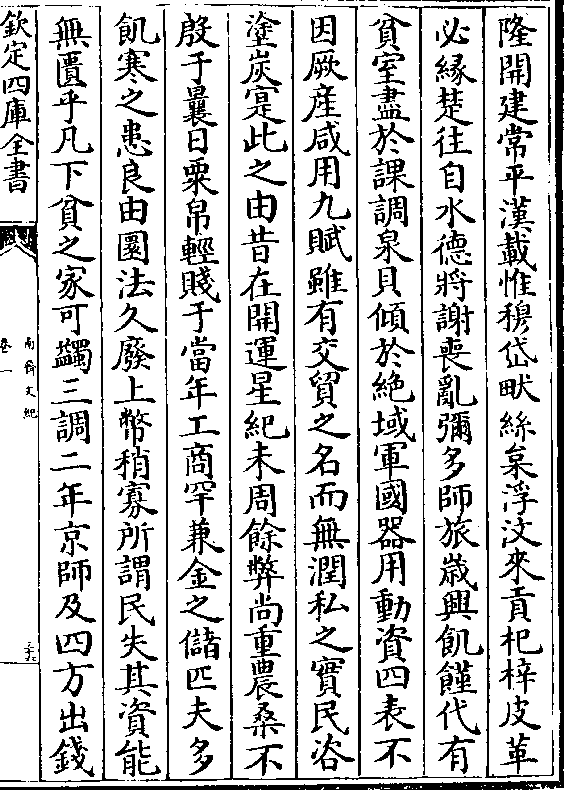 隆開建常平漢載惟穆岱畎絲枲浮汶來貢杞梓皮革
必縁楚往自水德將謝喪亂彌多師旅嵗興飢饉代有
貧室盡於課調泉貝傾於絶域軍國器用動資四表不
因厥産咸用九賦雖有交貿之名而無潤私之寳民咨
塗炭寔此之由昔在開運星紀未周餘弊尚重農桑不
殷于曩日粟帛輕賤于當年工商罕兼金之儲匹夫多
飢寒之患良由圜法久廢上幣稍寡所謂民失其資能
無匱乎凡下貧之家可蠲三調二年京師及四方出錢
欽定四庫全書
南齊文紀
卷一